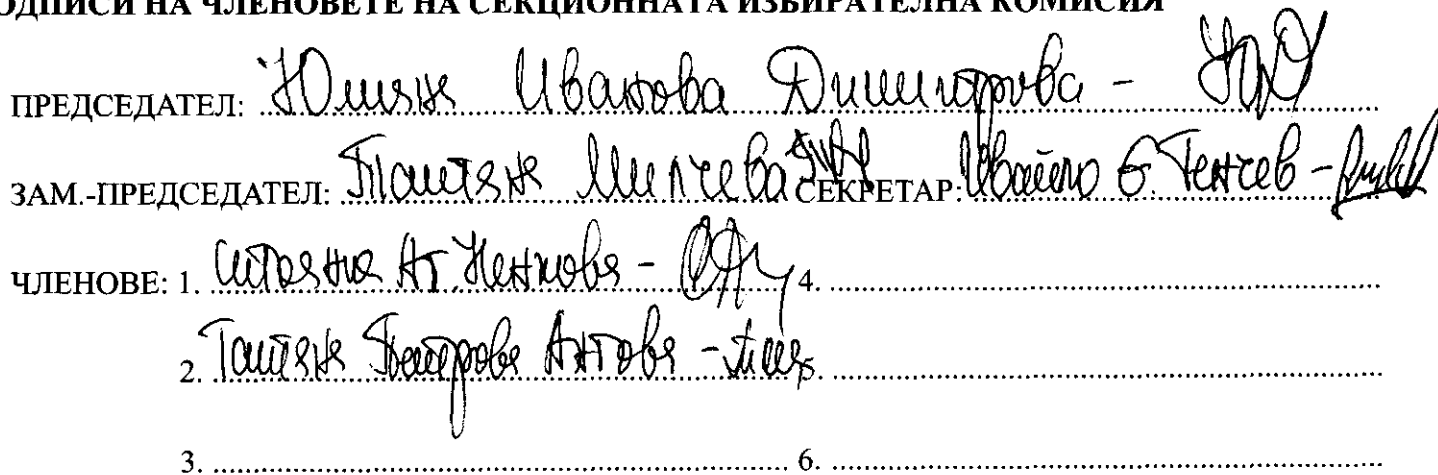 ОДПИСИ НА ЧЛЕНОВЕТЕ НА СЕКЦИОННАТА ИЗБИРАТЕЛНА КОМИСИЯ
ПРЕДСЕДАТЕЛ: Юлияна Иванова Димитрова -
ЗАМ.-ПРЕДСЕДАТЕЛ: Татяна Милчева СЕКРЕТАР: Ивайло Генчев -
ЧЛЕНОВЕ: 1. Стояна Ат. Ненкова - 4.
2. Татяна Петрова Антова - 5.
3. 6.